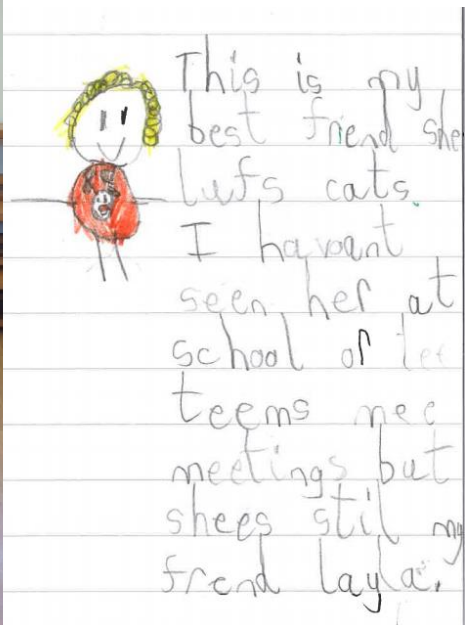 This is my
best friend she
lufs cats.
I havoant
seen her at
school or tee
teems mee
meetings but
shees stil my
frend layla.